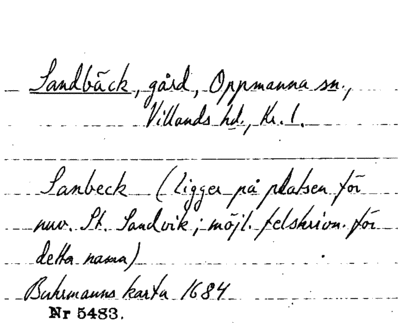 Sandbäck, gård, Oppmanna sn.,
Villands hd., Kr. l.
Sanbeck (ligger på platsen för
nuv. St. Sandvik; möjl. felskrivn. för
detta namn)
Buhrmanns karta 1684
Nr 5483.